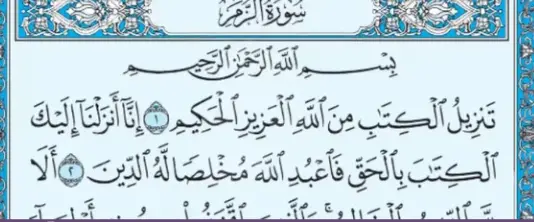 سُورَةُ الزُّمَرِ
بِسْمِ ٱللَّهِ ٱلرَّحْمَٰنِ ٱلرَّحِيمِ
تَنزِيلُ ٱلْكِتَٰبِ مِنَ ٱللَّهِ ٱلْعَزِيزِ ٱلْحَكِيمِ ١ إِنَّآ أَنزَلْنَآ إِلَيْكَ
ٱلْكِتَٰبَ بِٱلْحَقِّ فَٱعْبُدِ ٱللَّهَ مُخْلِصًا لَّهُ ٱلدِّينَ ٢ أَلَا